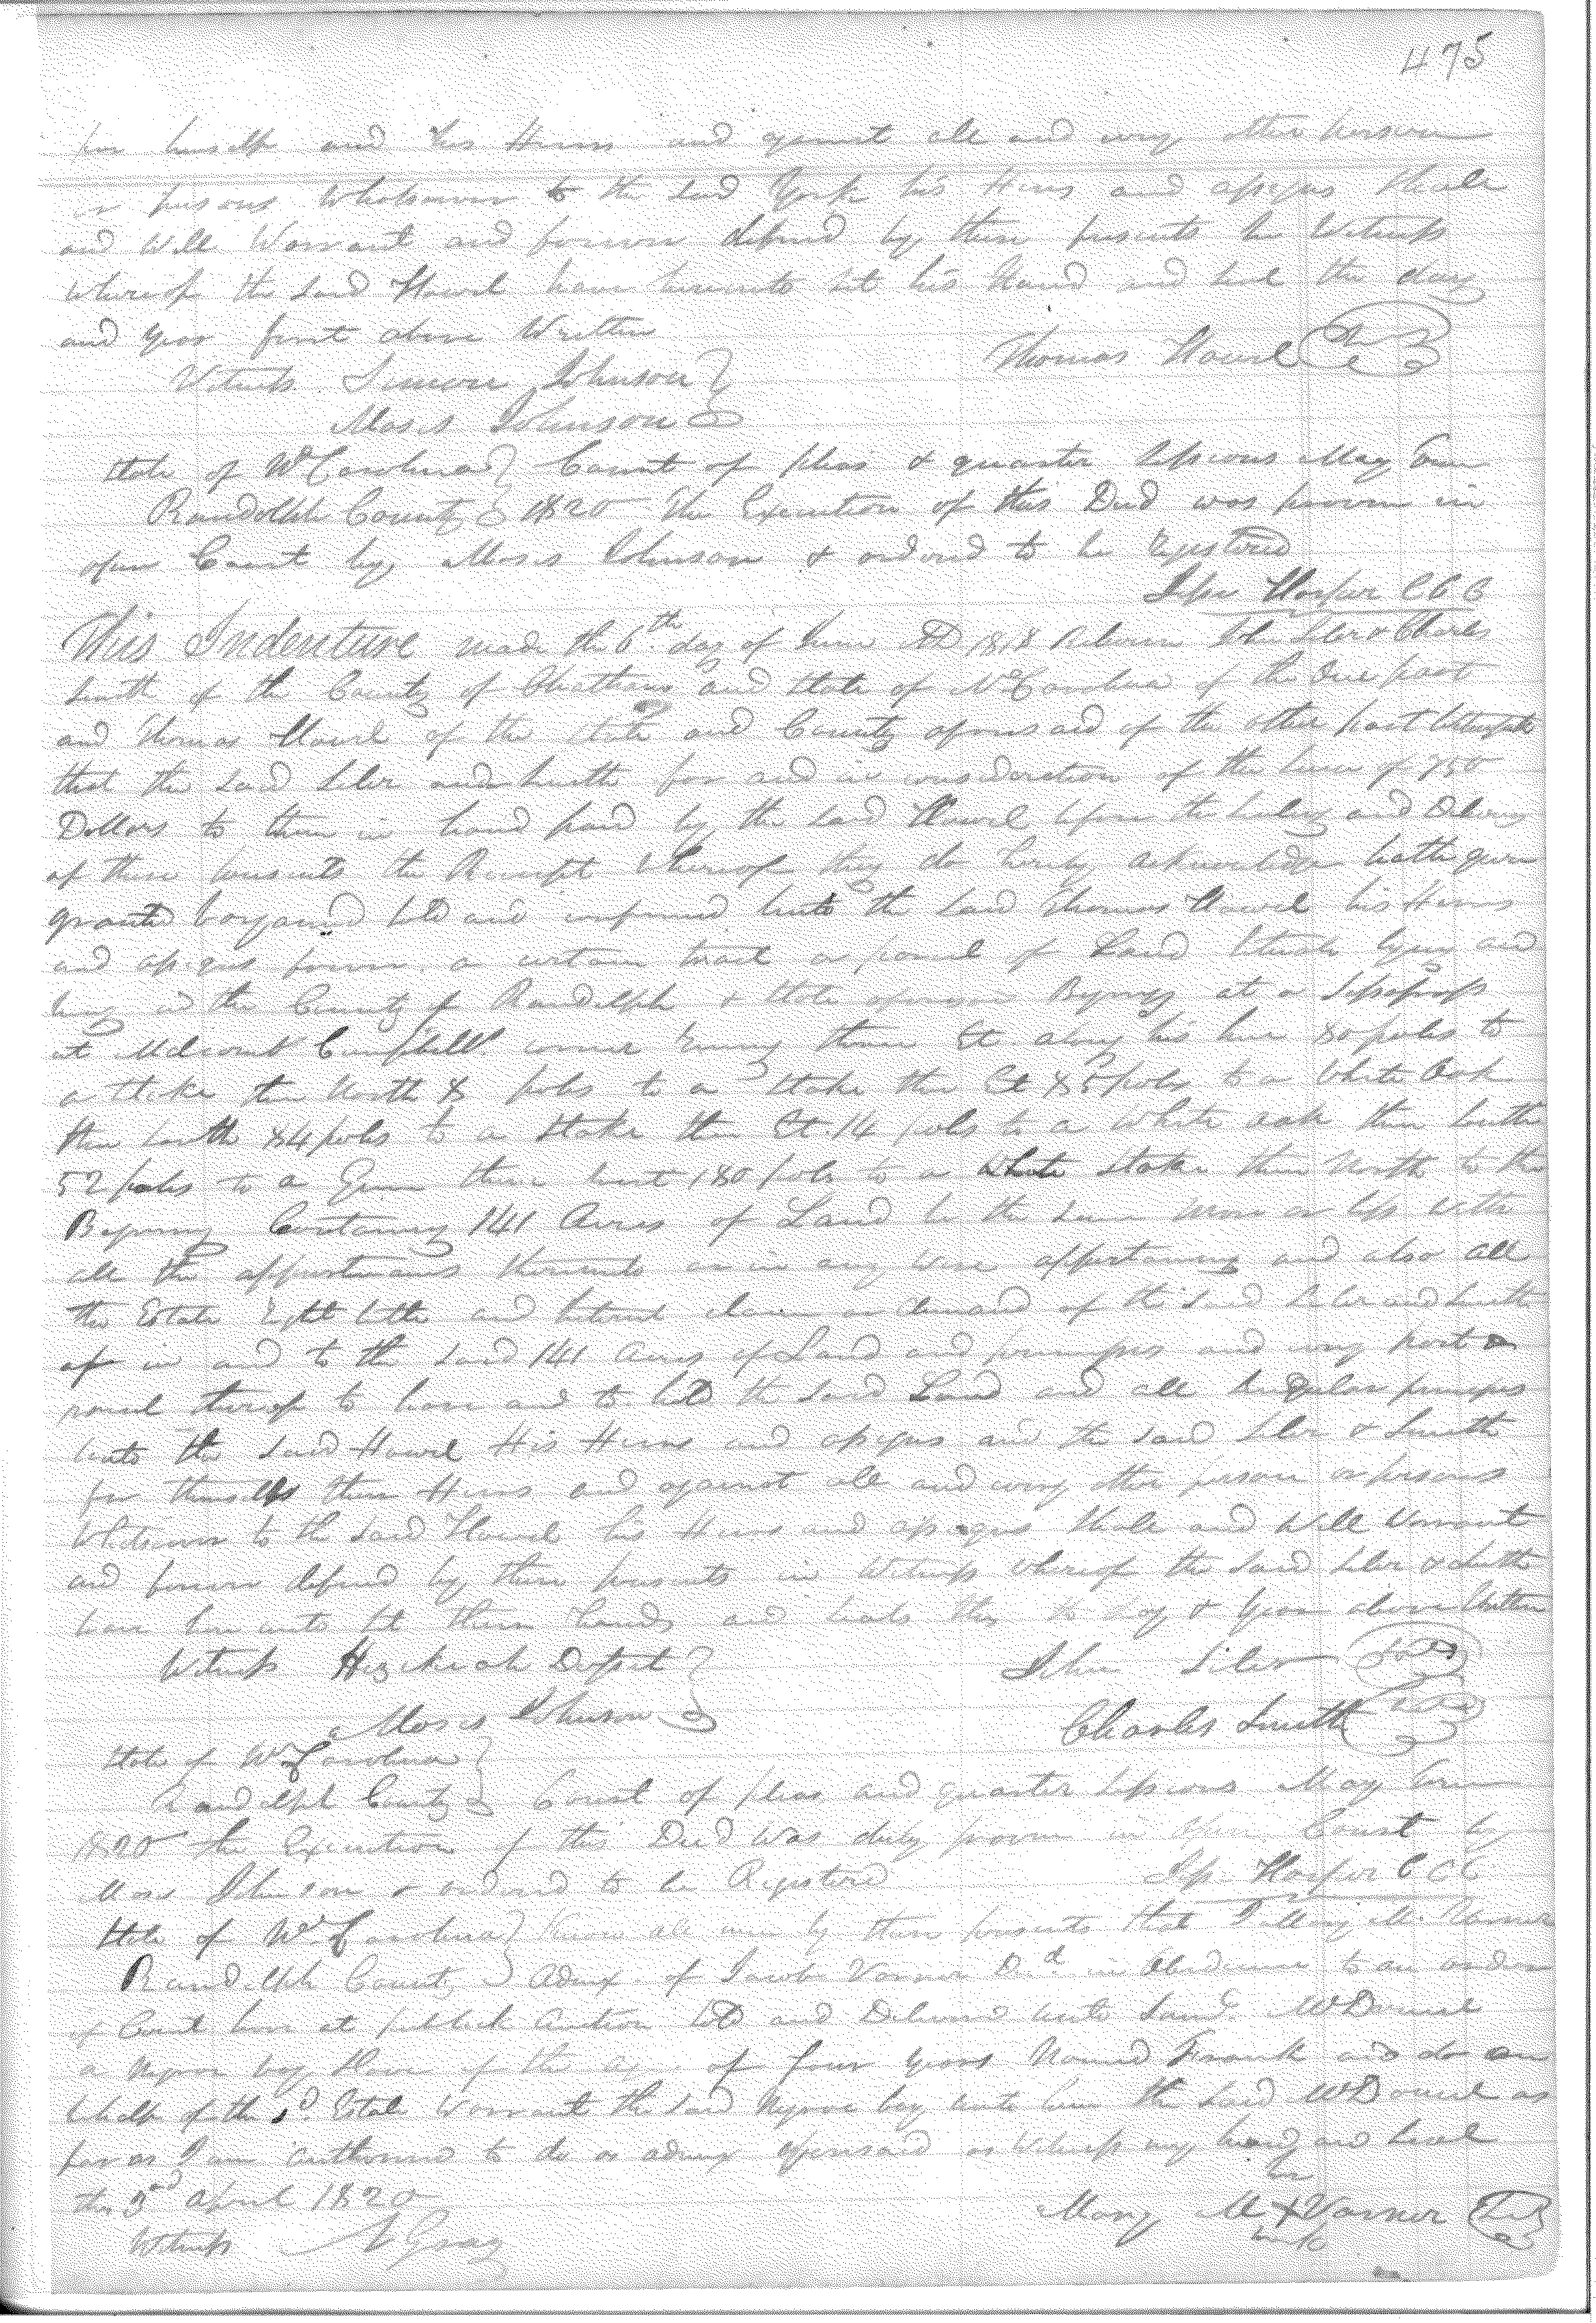 475
for himself and his Heirs and against all and every other person
or persons Whatsoever to the said York his Heirs and assigns shall
and Will Warrant and forever defend by these presents In Witness
whereof the said Howel have hereunto set his Hand and seal the day
and year first above Written
Thomas Howel Seal
Witness Simeon Johnson
Moses Johnson
State of No Carolina Court of pleas & quarter Sessions May Term
Randolph County 1820 The Execution of this Deed was proven in
open Court by Moses Johnson & ordered to be Registered
Jesse Harper C C C
This Indenture made the 6th day of June AD 1818 Between John Siler & Charles
Smith of the County of Chatham and State of No Carolina of the One part
and Thomas Howel of the State and County aforesaid of the other part Witnesseth
that the said Siler and Smith for and in consideration of the sum of 750
Dollars to them in hand paid by the said Howel Upon the sealing and Delivery
of these presents the Receipt Whereof they do hereby acknowledge hath given
granted bargained sold and confirmed unto the said Thomas Howel his Heirs
and assigns forever a certain tract or parcel of Land Situate lying and
being in the County of Randolph & State aforesaid Begining at a Sassafrass
at Campbells corner runing thence Et. along his line 80 poles to
a Stake then North 8 poles to a Stake then Et 85 poles to a White Oak
then South 84 poles to a Stake then Et. 14 poles to a White oak then South
52 poles to a Gum thence West 180 poles to a White Stake then North to the
Begining Containing 141 Acres of Land be the same more or less with
all the appurtenances thereunto or in any wise appertaining and also all
the Estate right title and Interest claim or demand of the said Siler and Smith
of in and to the said 141 Acres of Land and premises and every part or
parcel thereof to have and to hold the said Land and all singular premises
unto the said Howel His Heirs and assigns and the said Siler & Smith
for themselfs their Heirs and against all and every other person or persons
Whatsoever to the said Howel his Heirs and assigns shall and Will Warrant
and forever defend by these presents in Witness whereof the said Siler & Smith
have hereunto set their hands and seals this the day & year above Written
Witness Hezekiah
John Siler Seal
Moses Johnson
Charles Smith Seal
State of No Carolina
Randolph County Court of pleas and quarter Sessions May Term
1820 the Execution of this Deed was duly proven in Open Court by
Moses Johnson & ordered to be Registered Jesse Harper C C C
State of No Carolina Know all men by these presents that I Mary M. Varner
Randolph County Admx. of Jacob Varner Decd. in Obedience to an order
of Court have at publick Auction sold and Delivered unto Saml. McDowel
a Negroe boy Slave of the age of four years Named Frank and do on
behalf of the sd. Estate Warrant the said Negroe boy unto him the said McDowel as
far as I am authorised to do as admx aforesaid as Witness my hand and seal
this 3rd April 1820
her
Mary M X Varner Seal
mark
Witness A Gray